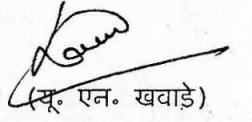 (यू. एन. खवाड़े)